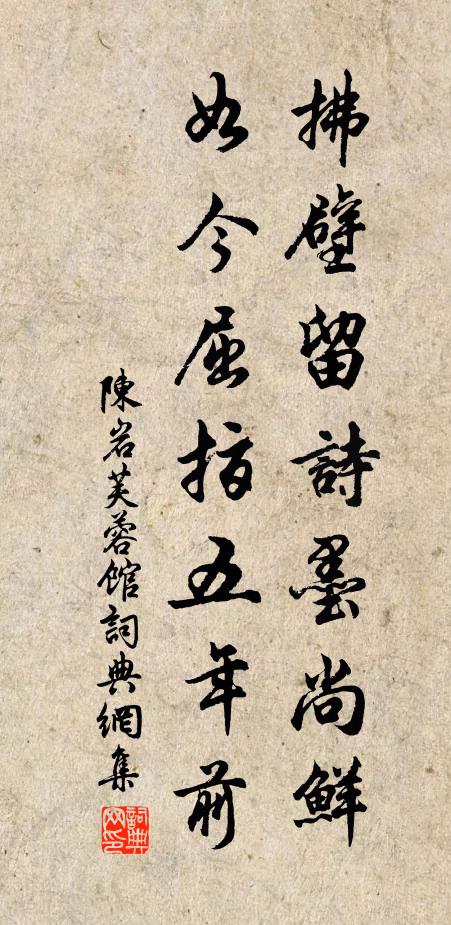 拂壁留詩墨尚鮮
如今屈指五年前
陳岩芙蓉館詞典網集
詞典網印